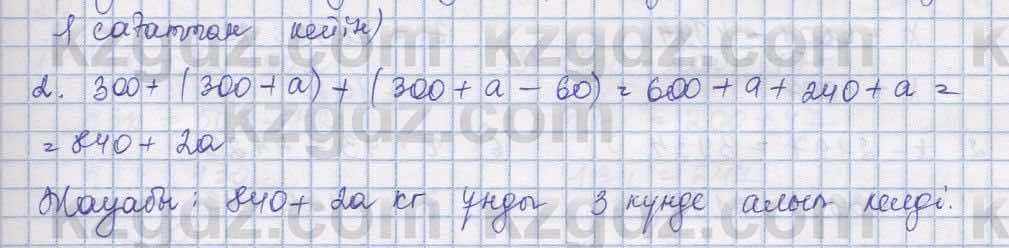 1 сағаттан кейін)
2. 300 + (300 + a) + (300 + a - 60) = 600 + a + 240 + a =
= 840 + 2a
Жауабы: 840 + 2a кг ұнды 3 күнде алып келді.
kzgdz.com